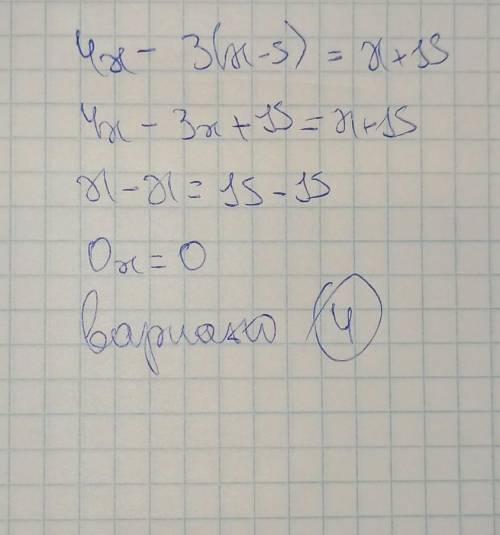 4x - 3(x-5) = x+15
4x - 3x + 15 = x+15
x - x = 15 - 15
0x = 0
вариант 4